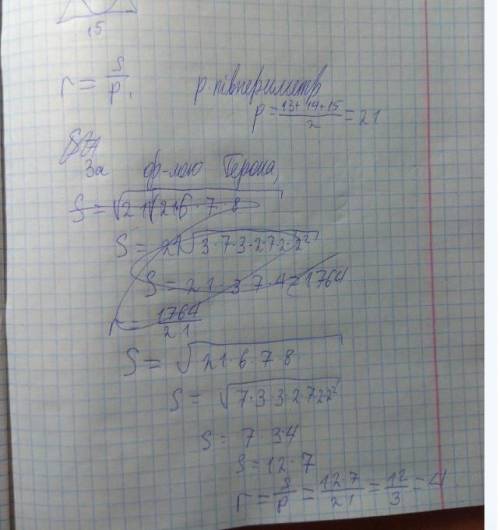 15
r = S/p, p півпериметр
p = (13+14+15)/2 = 21
За ф-лою Герона,
S = √21√216·7·8
S = 21√3·7·3·2·7·2·2²
S = 21·3·7·4 = 1764
r = 1764/21
S = √21·6·7·8
S = √7·3·3·2·7·2·2²
S = 7 3·4
S = 12·7
r = S/p = 12·7/21 = 12/3 = 4